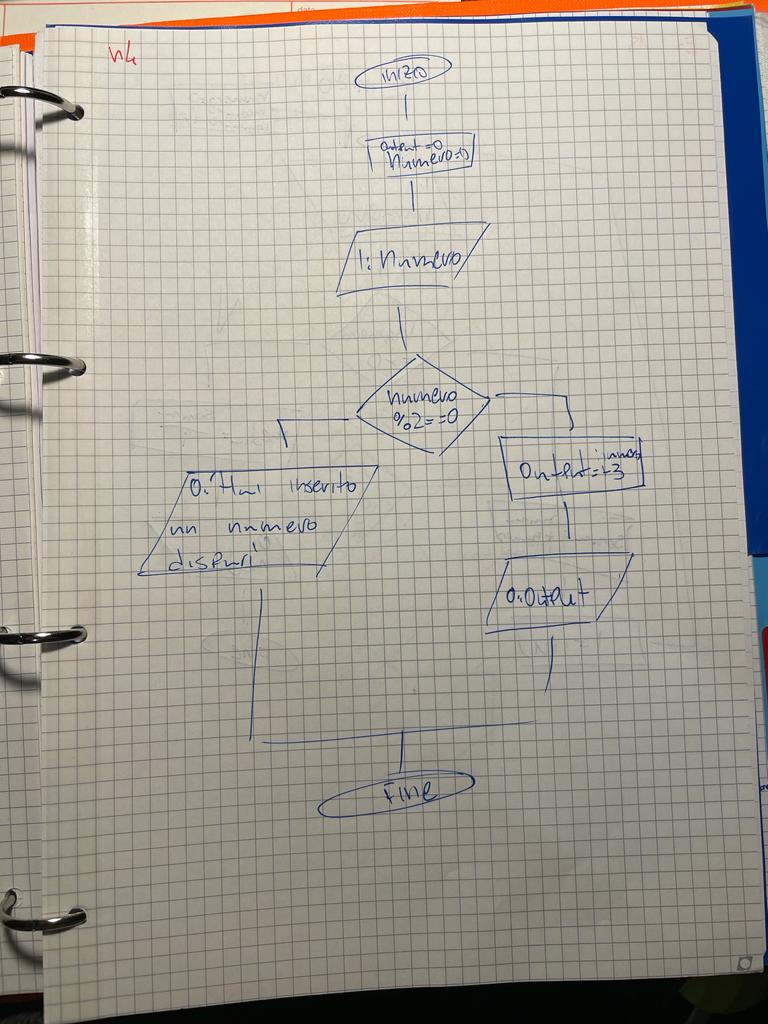 n4
inizo
Output=0
Numero=0
I: Numero
numero
%2==0
O: "Hai inserito
un numero
dispari"
Output=
+3
O: Output
Fine